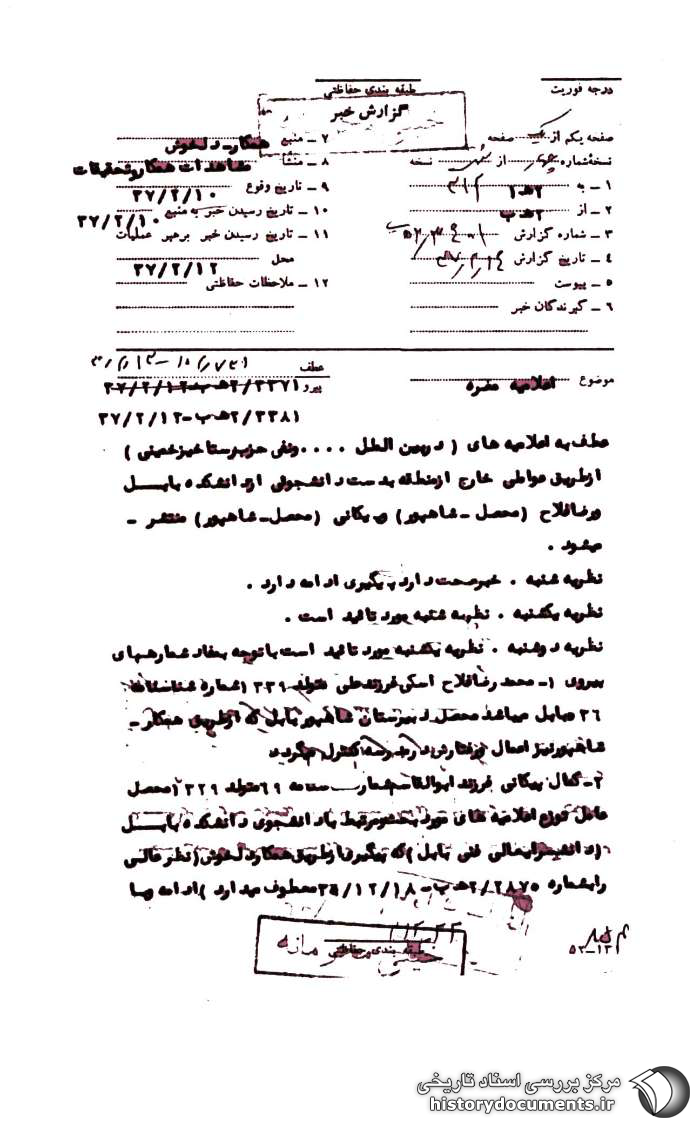 درجه فوریت
طبقه بندی حفاظتی
گزارش خبر
صفحه یکم از یک صفحه
نسخه شماره از نسخه
۱ ـ به ۳۱۲
۲ ـ از ۲ هـ ب
۳ ـ شماره گزارش
۴ ـ تاریخ گزارش
۵ ـ پیوست
۶ ـ گیرندگان خبر
۷ ـ منبع همکار ـ دلخوش
۸ ـ منشا مشاهدات همکار و تحقیقات
۹ ـ تاریخ وقوع ۳۷/۲/۱۰
۱۰ ـ تاریخ رسیدن خبر به منبع ۳۷/۲/۱۰
۱۱ ـ تاریخ رسیدن خبر برهبر عملیات
محل ۳۷/۲/۱۲
۱۲ ـ ملاحظات حفاظتی
موضوع اعلامیه مضره
عطف
پیرو ۲/۳۳۷۱هـ ب ـ ۳۷/۲/۱۲
۲/۳۳۸۱هـ ب ـ ۳۷/۲/۱۲
عطف به اعلامیه های ( دربین الملل .... ونفی حزب رستاخیز خمینی )
ازطریق عواملی خارج ازمنطقه بدست دانشجوئی ازدانشکده بابسل
ورضافلاح (محصل ـ شاهپور) و یکانی (محصل ـ شاهپور) منتشر ـ
میشود .
نظریه شنبه . خبرصحت دارد پیگیری ادامه دارد .
نظریه یکشنبه . نظریه شنبه مورد تائید است .
نظریه دوشنبه . نظریه یکشنبه مورد تائید است باتوجه بمفاد شمارههای
پیروی ۱ـ محمد رضافلاح اسکی فرزند علی متولد ۱۳۳۹ شماره شناسنامه
۳۶ بابل میباشد محصل دبیرستان شاهپور بابل که ازطریق همکار ـ
شاهپور نیز اعمال ورفتارش در مدرسه کنترل میگردد
۲ـ کمال یکانی فرزند ابوالقاسم شماره شناسنامه ۶۹ متولد ۱۳۲۹ محصل
عامل توزیع اعلامیه های مورد بحث و مرتبط با دانشجوی دانشکده بابسل
(دانشسرایعالی فنی بابل) که پیگیری ازطریق همکار دلخوش (نظر عالی
رابشماره ۲/۲۸۷۵هـ ب ـ ۳۶/۱۲/۱۸ معطوف میدارد ) ادامه دارد
طبقه بندی حفاظتی
خیلی محرمانه
۵۲ـ۱۳۱
مرکز بررسی اسناد تاریخی
historydocuments.ir